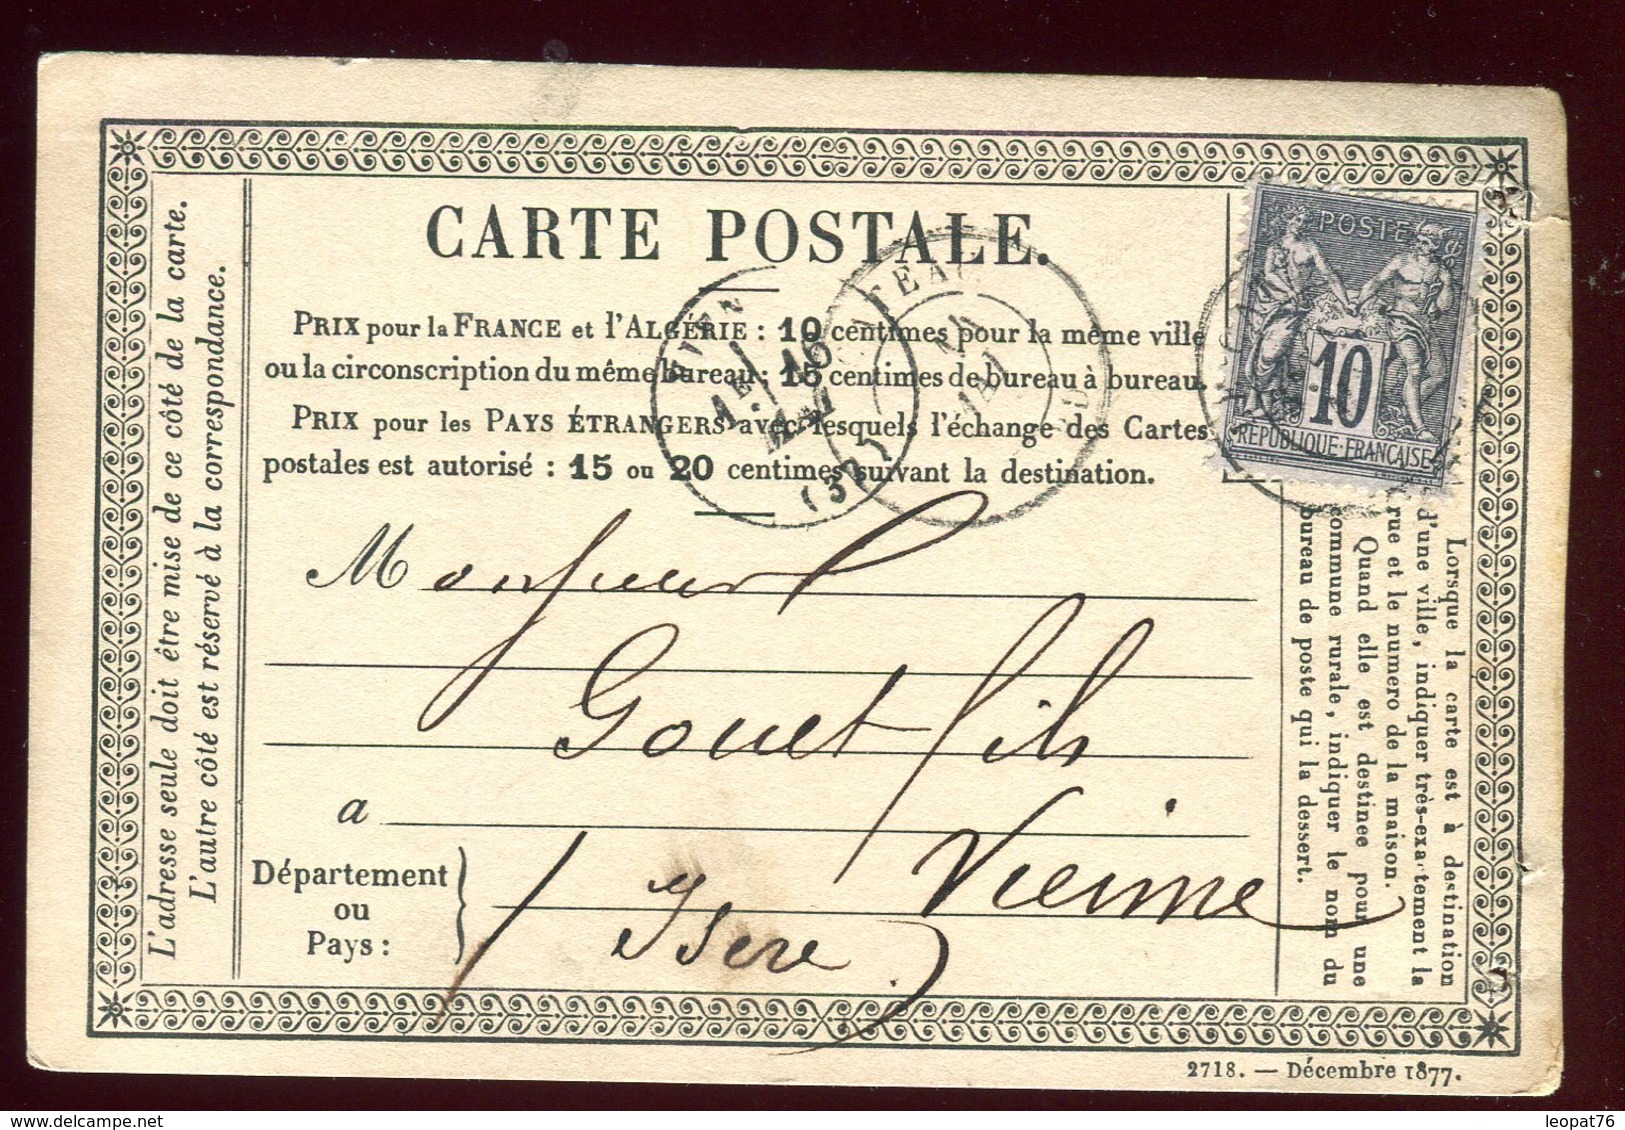 CARTE POSTALE.
PRIX pour la FRANCE et l'ALGÉRIE : 10 centimes pour la même ville
ou la circonscription du même bureau ; 15 centimes de bureau à bureau.
PRIX pour les PAYS ÉTRANGERS avec lesquels l'échange des Cartes
postales est autorisé : 15 ou 20 centimes suivant la destination.
L'adresse seule doit être mise de ce côté de la carte.
L'autre côté est réservé à la correspondance.
POSTE
10
REPUBLIQUE FRANÇAISE
1E
MAI
(37)
Monsieur
Gouet fils
a
Vienne
Département
ou
Pays :
Isere
Lorsque la carte est à destination
d'une ville, indiquer très-exactement la
rue et le numero de la maison.
Quand elle est destinee pour une
commune rurale, indiquer le nom du
bureau de poste qui la dessert.
2718. — Décembre 1877.
leopat76